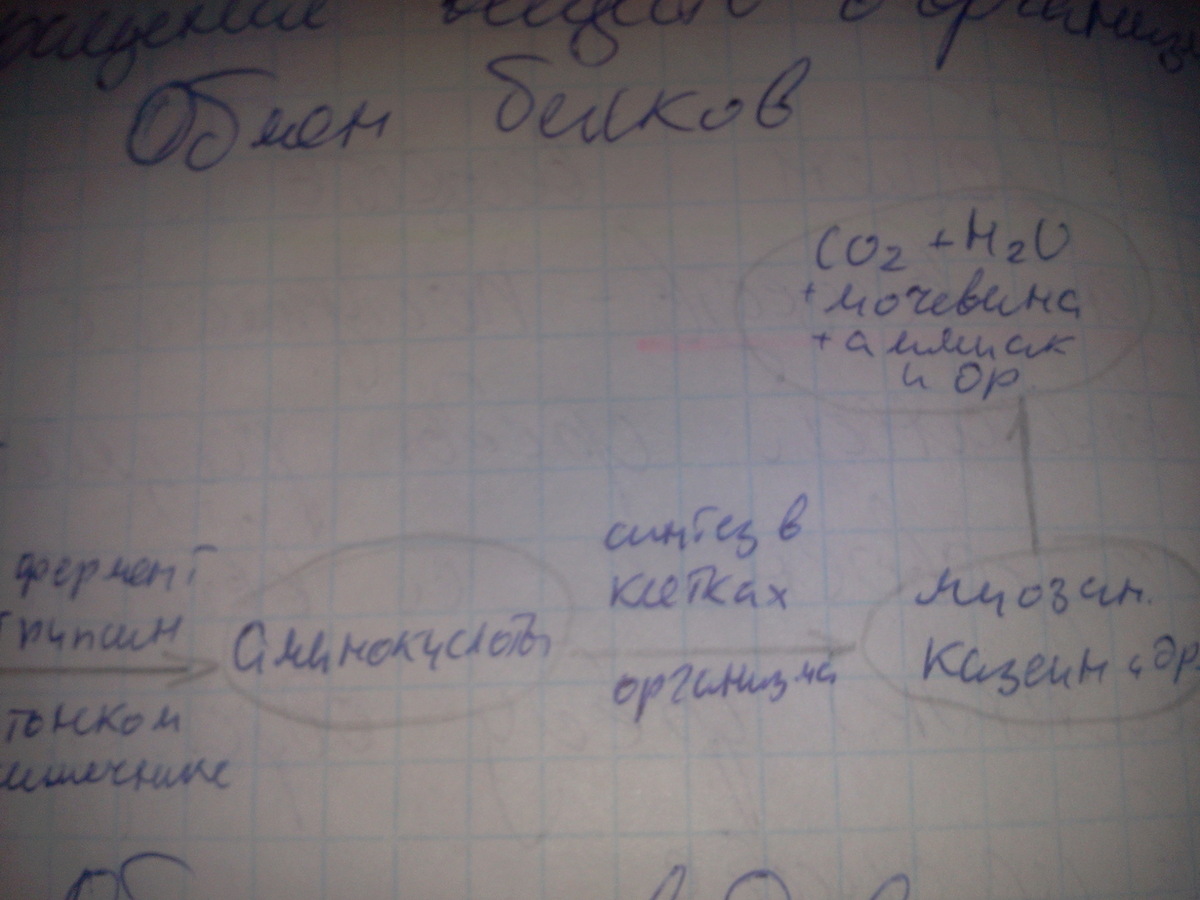 ращение веществ в организ
Обмен белков
CO₂ + H₂O
+ мочевина
+ аммиак
и др
фермент
трипсин
тонком
кишечнике
аминокислоты
синтез в
клетках
организма
миозин.
Казеин и др